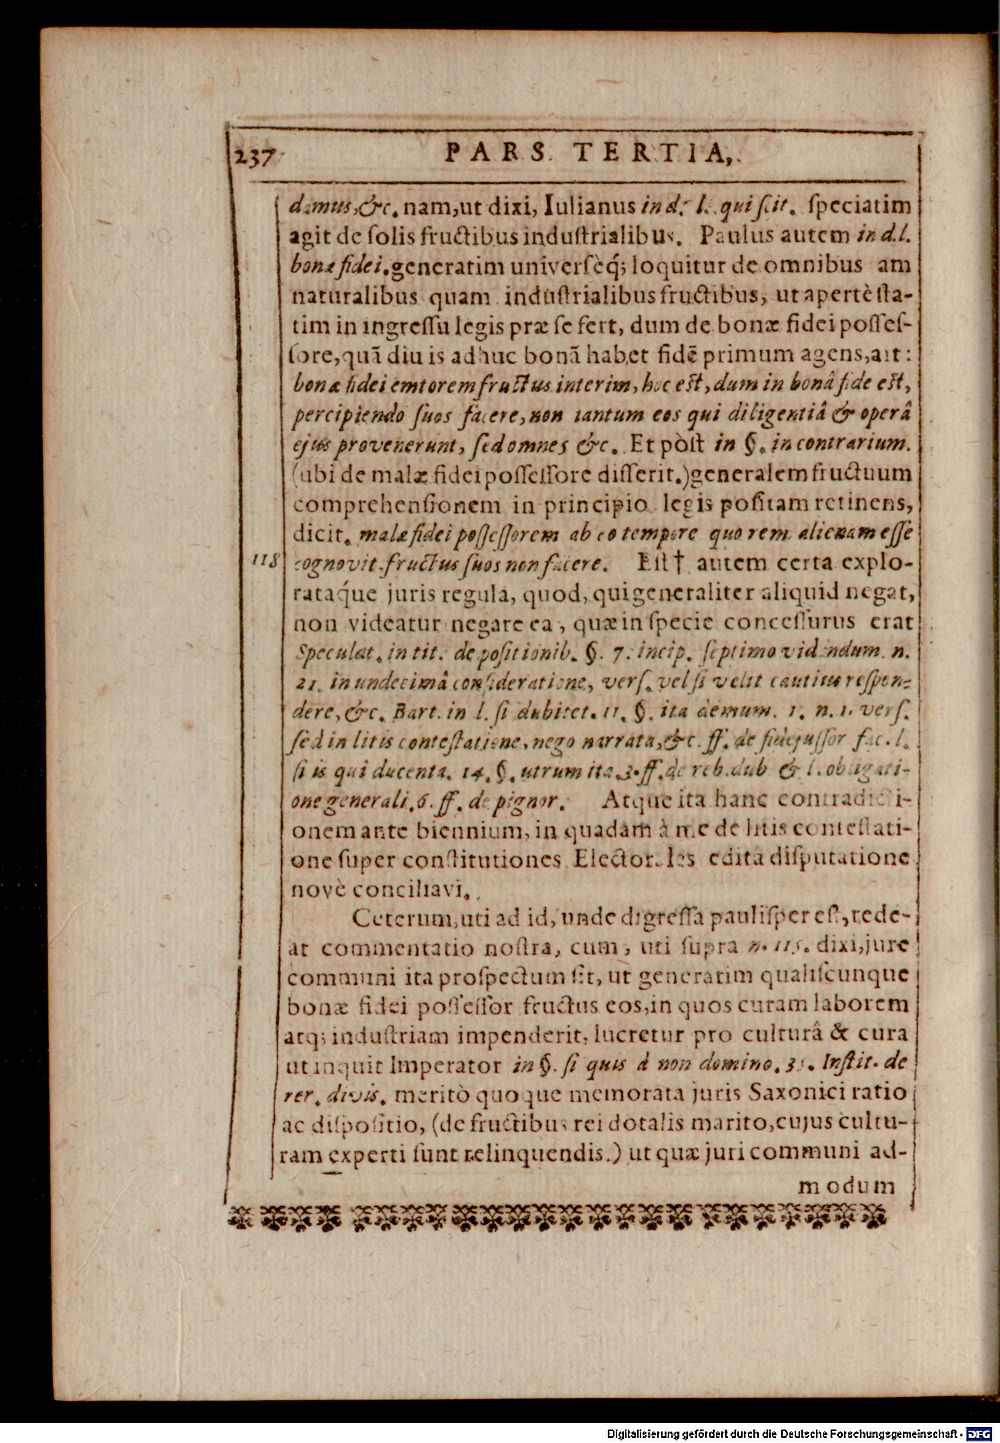 237 PARS TERTIA,
damus, &c. nam, ut dixi, Iulianus in d. l. qui scit. speciatim
agit de solis fructibus industrialibus. Paulus autem in d. l.
bonæ fidei. generatim universèq; loquitur de omnibus am
naturalibus quam industrialibus fructibus, ut apertè sta-
tim in ingressu legis præ se fert, dum de bonæ fidei posses-
sore, quã diu is adhuc bonã habet fidẽ primum agens, ait:
bonæ fidei emtorem fructus interim, hoc est, dum in bonâ fide est,
percipiendo suos facere, non tantum eos qui diligentiâ & operâ
ejus provenerunt, sed omnes &c. Et pòst in §. in contrarium.
(ubi de malæ fidei possessore disserit.) generalem fructuum
comprehensionem in principio legis positam retinens,
dicit. malæ fidei possessorem ab eo tempore quo rem alienam esse
118 cognovit. fructus suos non facere. Est † autem certa explo-
rataq́ue juris regula, quod, qui generaliter aliquid negat,
non videatur negare ea, quæ in specie concessurus erat
Speculat. in tit. de positionib. §. 7. incip. septimo videndum. n.
21. in undecimâ consideratione, vers. vel si velit cautius respon-
dere, &c. Bart. in l. si dubitet. 11. §. ita demum. 1. n. 1. vers.
sed in litis contestatione, nego narrata, &c. ff. de fidejussor fac. l.
si is qui ducenta. 14. §. utrum ita. 3. ff. de reb. dub & l. obligati-
one generali. 6. ff. de pignor. Atque ita hanc contradicti-
onem ante biennium, in quadam à me de litis contestati-
one super constitutiones Elector. les edita disputatione
novè conciliavi.
Ceterum, uti ad id, unde digressa paulisper est, rede-
at commentatio nostra, cum, uti supra n. 115. dixi, jure
communi ita prospectum sit, ut generatim qualiscunque
bonæ fidei possessor fructus eos, in quos curam laborem
atq; industriam impenderit, lucretur pro culturâ & cura
ut inquit Imperator in §. si quis à non domino. 35. Instit. de
rer. divis. meritò quoque memorata juris Saxonici ratio
ac dispositio, (de fructibus rei dotalis marito, cujus cultu-
ram experti sunt relinquendis.) ut quæ juri communi ad-
modum
Digitalisierung gefördert durch die Deutsche Forschungsgemeinschaft - DFG